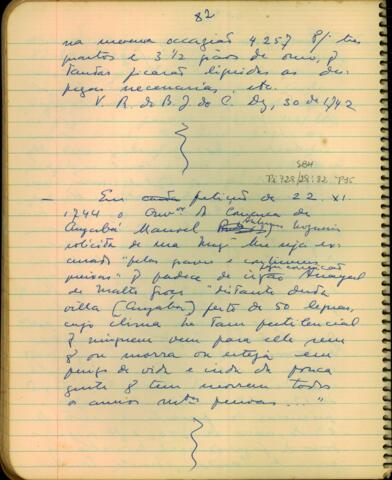 82
na mesma occazião 4257 8/. tres
quartos e 3 1/2 grãos de ouro, q
tantas ficarão liquidas as des-
pezas necessarias, etc.
V. R. do B. J. do C. Dez, 30 de 1742
SBH
Pi 728/28:82 P35
— Em petição de 22. XI.
1744 o Ouv.or da Comarca de
Cuyabá Manoel Antunes Nogueira
solicita de sua Mag.e lhe seja es-
cusado "pelas graves e continuas
q padece de ir em correição Arrayal
de Matto Groço "distante desta
villa (Cuyabá) perto de 50 legoas,
cujo clima he tam pestilencial
q ninguem vem para elle sem
q ou morra ou esteja em
perigo de vida e inda da pouca
gente q tem morrem todos
os annos pessoas ..."